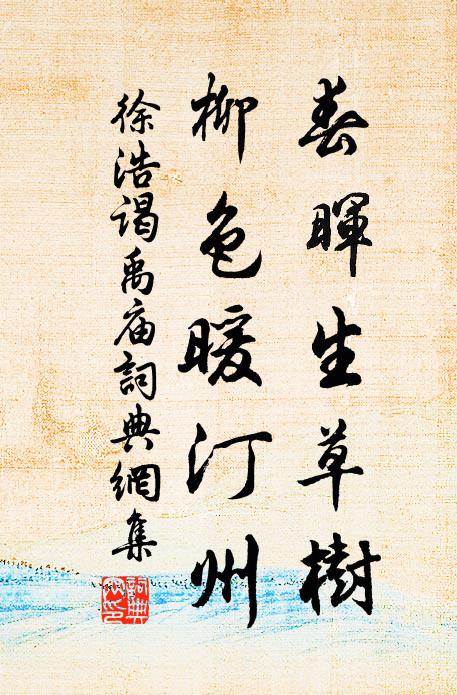 春暉生草樹
柳色暖汀州
徐浩謁禹庙詞典網集